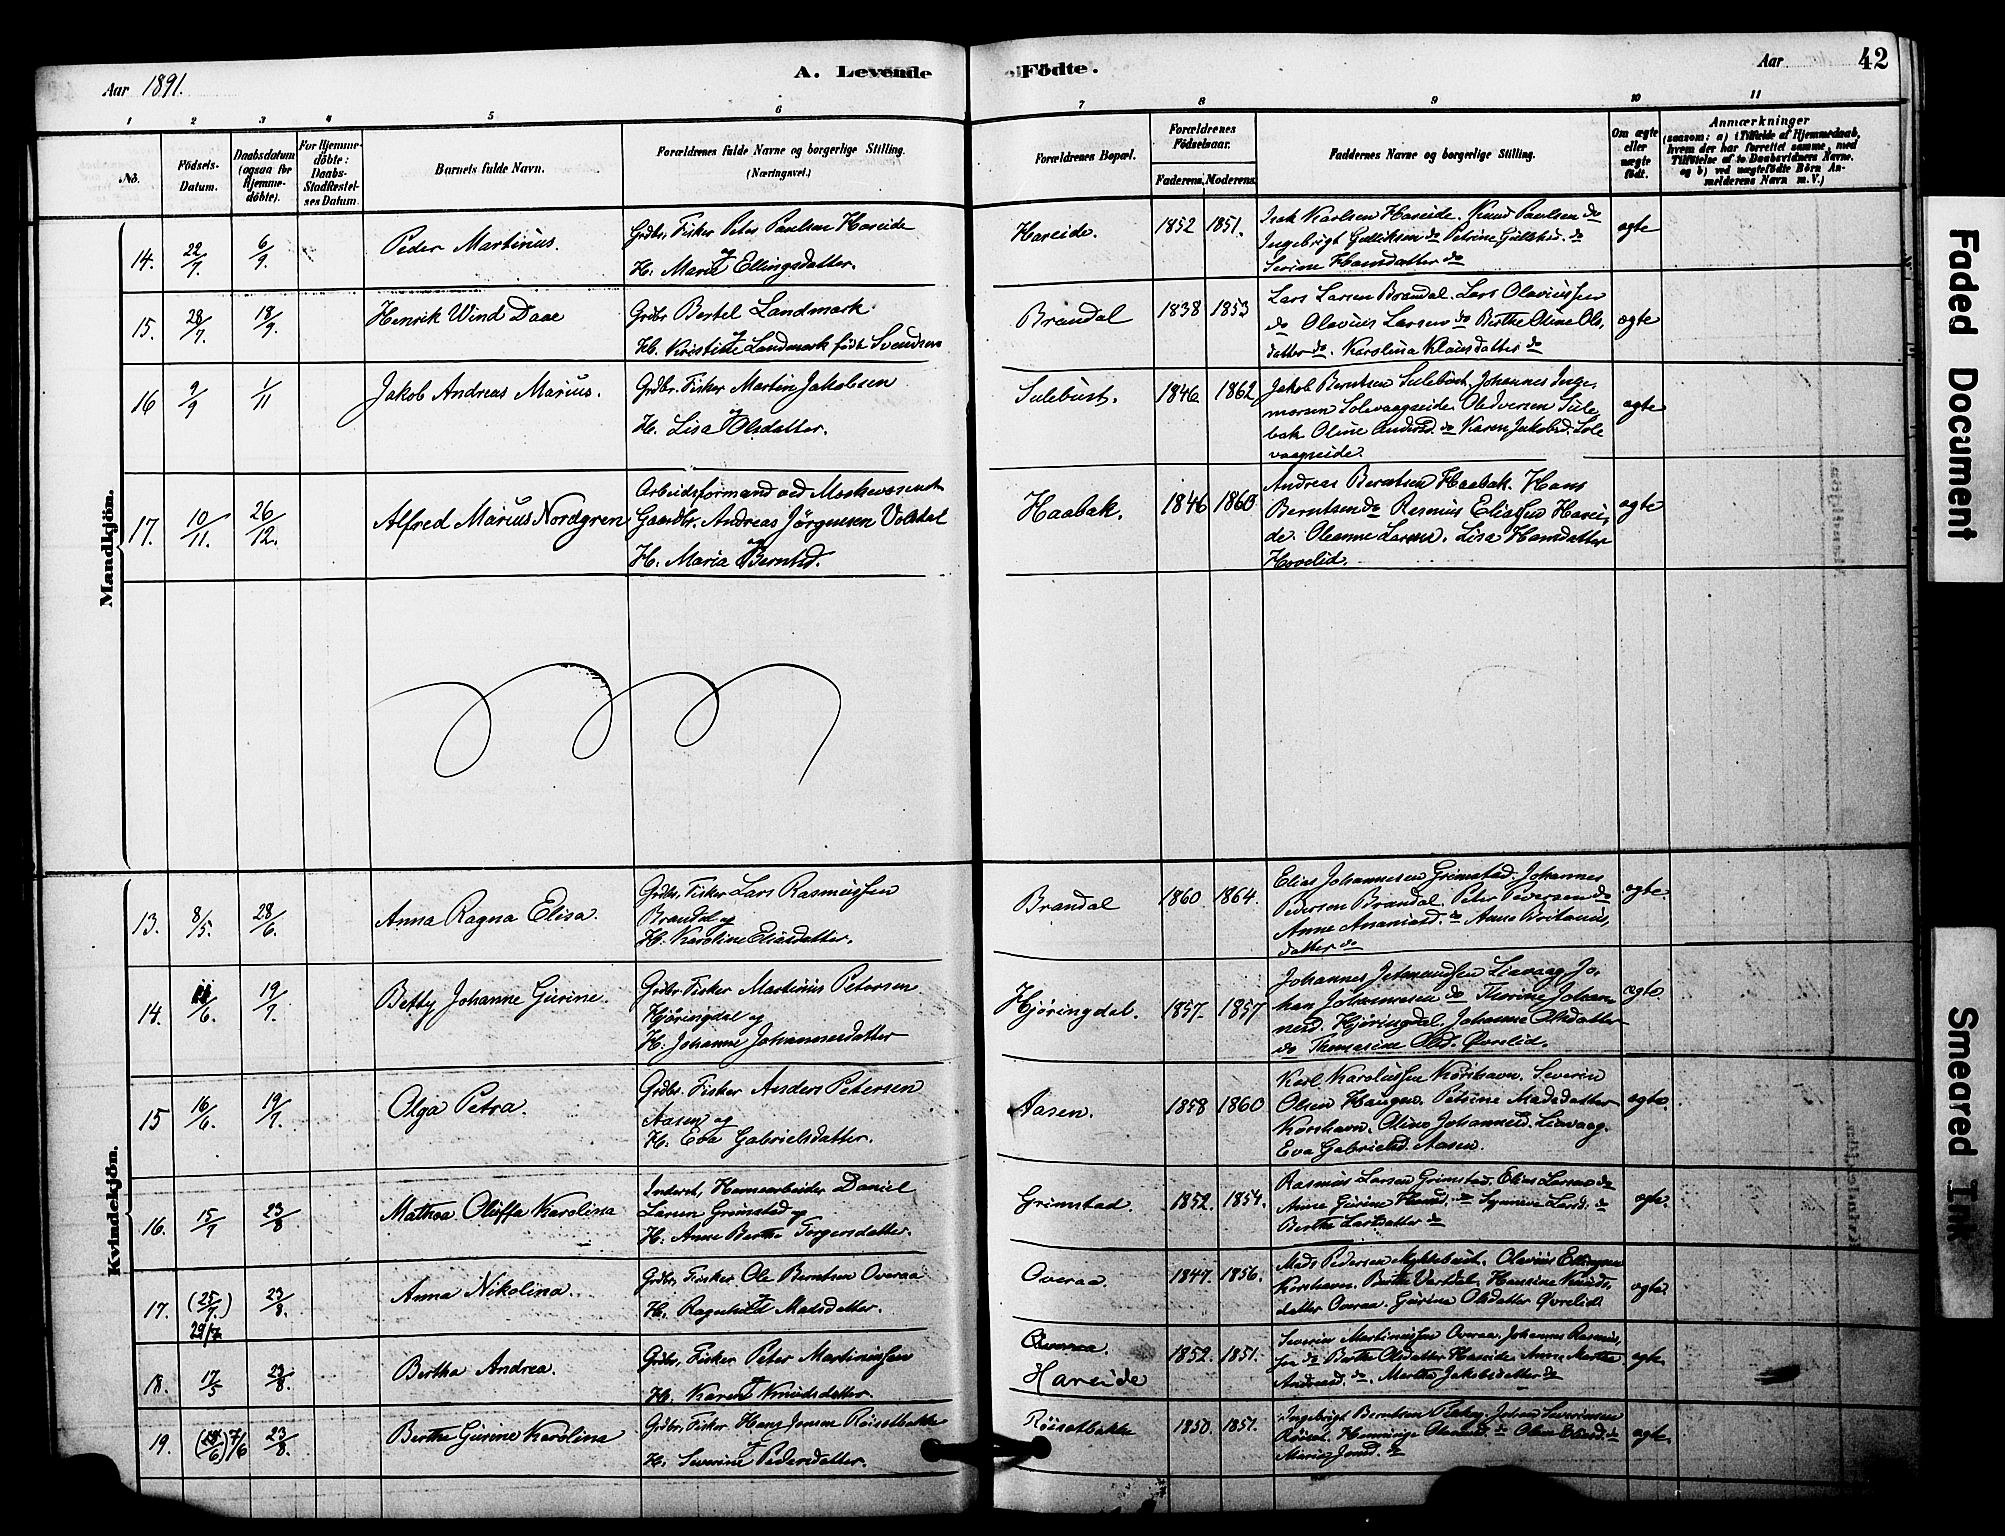 Aar 1891.
A. Levende Födte.
Aar
42
1 2 3 4 5 6 7 8 9 10 11
No.
Födsels-Datum.
Daabsdatum (ogsaa for Hjemme-döbte).
For Hjemme-döbte: Daabs-Stadfæstel-ses Datum.
Barnets fulde Navn.
Forældrenes fulde Navne og borgerlige Stilling. (Næringsvei.)
Forældrenes Bopæl.
Forældrenes Födselsaar.
Faderens. Moderens.
Faddernes Navne og borgerlige Stilling.
Om ægte eller uægte födt.
Anmærkninger
(saasom: a) i Tilfælde af Hjemmedaab, hvem der har forrettet samme, med Tilföielse af to Daabsvidners Navne, og b) ved uægtefödte Börn An-melderens Navn m. V.)
Mandkjön.
14. 22/7 6/9 Peder Martinus. Grdbr. Fisker Peter Paulsen Hareide
og
H. Marie Ellingsdatter.
Hareide. 1852 1851. Isak Karlsen Hareide. Knud Paulsen do
Ingebrigt Gulliksen do Petrine Gulliksd. do
Serine Hansdatter do
ægte
15. 28/7 18/9 Henrik Wind Daae Grdbr Bertel Landmark
og
H. Kristine Landmark født Svendsen
Brandal 1838 1853 Lars Larsen Brandal. Lars Olaviussen
do Olavius Larsen do Berthe Oline Ols.
datter do. Karolina Klausdatter do
ægte
16 9/9 1/11 Jakob Andreas Marius. Grdbr. Fisker Martin Jakobsen
og
H. Lisa Olsdatter.
Sulebust. 1846 1862 Jakob Berntsen Sulebust. Johannes Inge-
marsen Solevaagseide. Ole Iversen Sule
bak Oline Andersd. do Karen Jakobsd. Sole
vaagseide.
ægte
17. 10/11. 26/12. Alfred Marius Nordgren Arbeidsformand ved
Gaardbr. Andreas Jörgensen Voldal
og
H. Maria Berntsd.
Haabak. 1846 1860 Andreas Berntsen Haabak. Hans
Berntsen do Rasmus Eliassen Harei-
de. Oleanne Larsens. Lisa Hansdatter
Hovlid.
ægte
Kvindekjön.
13. 8/5. 28/6. Anna Ragna Elisa. Grdbr. Fisker Lars Rasmussen
Brandal og
H. Karoline Eliasdatter.
Brandal 1860. 1864. Elias Johannesen Grimstad. Johannes
Pedersen Brandal. Peter Pedersen do
Anne Ananiasd. do Anne Britanus,
datter do
ægte.
14. /6. 19/7. Betty Johanne Gurine. Grdbr. Fisker Martinus Petersen
Hjøringdal og
H. Johanne Johannesdatter
Hjøringdal. 1857. 1857 Johannes Jetmundsen Liavaag Jo-
han Johannesen do Thorine Johan-
nesd. Hjøringdal. Johanne Olsdatter
do Thomasine Olsd. Øvrelid.
ægte.
15 16/6. 19/7. Olga Petra. Grdbr. Fisker Anders Petersen
Aasen og
H. Eva Gabrielsdatter.
Aasen. 1858 1860 Karl Karolussen Korshavn. Severin
Olsen Haugen. Petrine Madsdatter
Korshavn. Oline Johannesd. Liavaag.
Eva Gabrielsd. Aasen.
ægte.
16. 15/7 23/8 Mathea Oluffa Karolina Inderst, Havnearbeider Daniel
Larsen Grimstad og
H. Anne Berthe Torgersdatter.
Grimstad. 1852. 1854. Rasmus Larsen Grimstad. Elias Larsen do
Anne Gurine Hansd. do Synneve Larsd. do
Berthe Larsdatter do
ægte.
17. (25/7.) 29/7 23/8. Anna Nikolina. Grdbr. Fisker Ole Berntsen Overaa
og
H. Ragnhild Madsdatter.
Overaa. 1847. 1856. Mads Pedersen Myklebust. Olavius Ellingsen
Korshavn. Berthe Vartdal. Hansine Knuds.
datter Overaa. Gurine Olsdatter Øvrelid.
ægte.
18. 17/5 23/8. Bertha Andrea. Grdbr. Fisker Peter Martinussen
og
H. Karen Knudsdatter.
Overaa.
Hareide
1852. 1851. Severin Martinussen Overaa. Johannes Rasmus,
sen do Berthe Olsdatter Hareide. Anne Marthe
Andreasd. do. Marthe Jakobsdatter do
ægte
19. 7/6 23/8. Berthe Gurine Karolina Grdbr. Fisker Hans Jonsen Röisetbakke
og
H. Severine Pedersdatter.
Röisetbakke 1850. 1851. Ingebrigt Berntsen. Johan Severinsen
Röiset. do Oline Eliasd. do
Marie Jonsd. do
ægte.
Faded Document
Smeared Ink